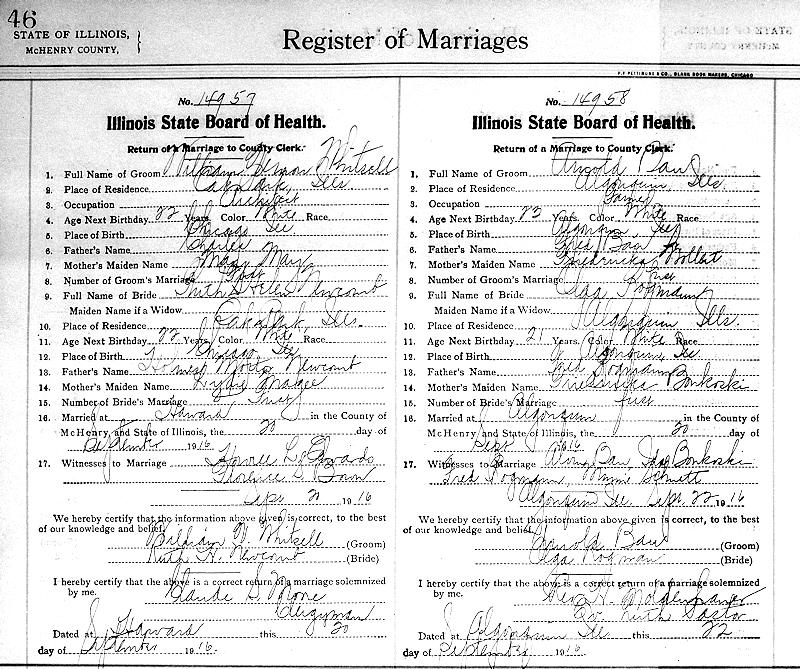 46
STATE OF ILLINOIS,
McHENRY COUNTY,
Register of Marriages
P. F. PETTIBONE & CO., BLANK BOOK MAKERS, CHICAGO
No. 14957
Illinois State Board of Health.
Return of a Marriage to County Clerk.
1. Full Name of Groom William Vernon Whitsell
2. Place of Residence Oak Park, Ills
3. Occupation Architect
4. Age Next Birthday 22 Years, Color White Race.
5. Place of Birth Chicago Ill
6. Father's Name Charles
7. Mother's Maiden Name Mary
8. Number of Groom's Marriage First
9. Full Name of Bride Ruth Helen Newcomb
Maiden Name if a Widow
10. Place of Residence Oak Park, Ills.
11. Age Next Birthday 22 Years, Color White Race.
12. Place of Birth Chicago Ills
13. Father's Name Newcomb
14. Mother's Maiden Name Magee
15. Number of Bride's Marriage First
16. Married at Harvard in the County of
McHenry, and State of Illinois, the 20 day of
September 1916
17. Witnesses to Marriage Edwards
Florence
Sept 20 1916
We hereby certify that the information above given is correct, to the best
of our knowledge and belief.
William V. Whitsell (Groom)
Ruth H. Newcomb (Bride)
I hereby certify that the above is a correct return of a marriage solemnized
by me. Claude S.
Clergyman
Dated at Harvard this 20
day of September 1916.
No. 14958
Illinois State Board of Health.
Return of a Marriage to County Clerk.
1. Full Name of Groom Arnold Bau
2. Place of Residence Algonquin, Ills
3. Occupation Farmer
4. Age Next Birthday 23 Years, Color White Race.
5. Place of Birth Algonquin Ill
6. Father's Name Fred Bau
7. Mother's Maiden Name Friedricka
8. Number of Groom's Marriage First
9. Full Name of Bride Rogmann
Maiden Name if a Widow
10. Place of Residence Algonquin Ills.
11. Age Next Birthday 21 Years, Color White Race.
12. Place of Birth Algonquin, Ill
13. Father's Name Fred Rogmann
14. Mother's Maiden Name Bonkoski
15. Number of Bride's Marriage first
16. Married at Algonquin in the County of
McHenry, and State of Illinois, the 20 day of
Sept 1916
17. Witnesses to Marriage Bau Bonkoski
Fred Rogmann,
Algonquin Ill Sept. 22, 1916
We hereby certify that the information above given is correct, to the best
of our knowledge and belief.
Arnold Bau (Groom)
Rogman (Bride)
I hereby certify that the above is a correct return of a marriage solemnized
by me. H.
Ev. Luth Pastor
Dated at Algonquin Ill this 22
day of September 1916.